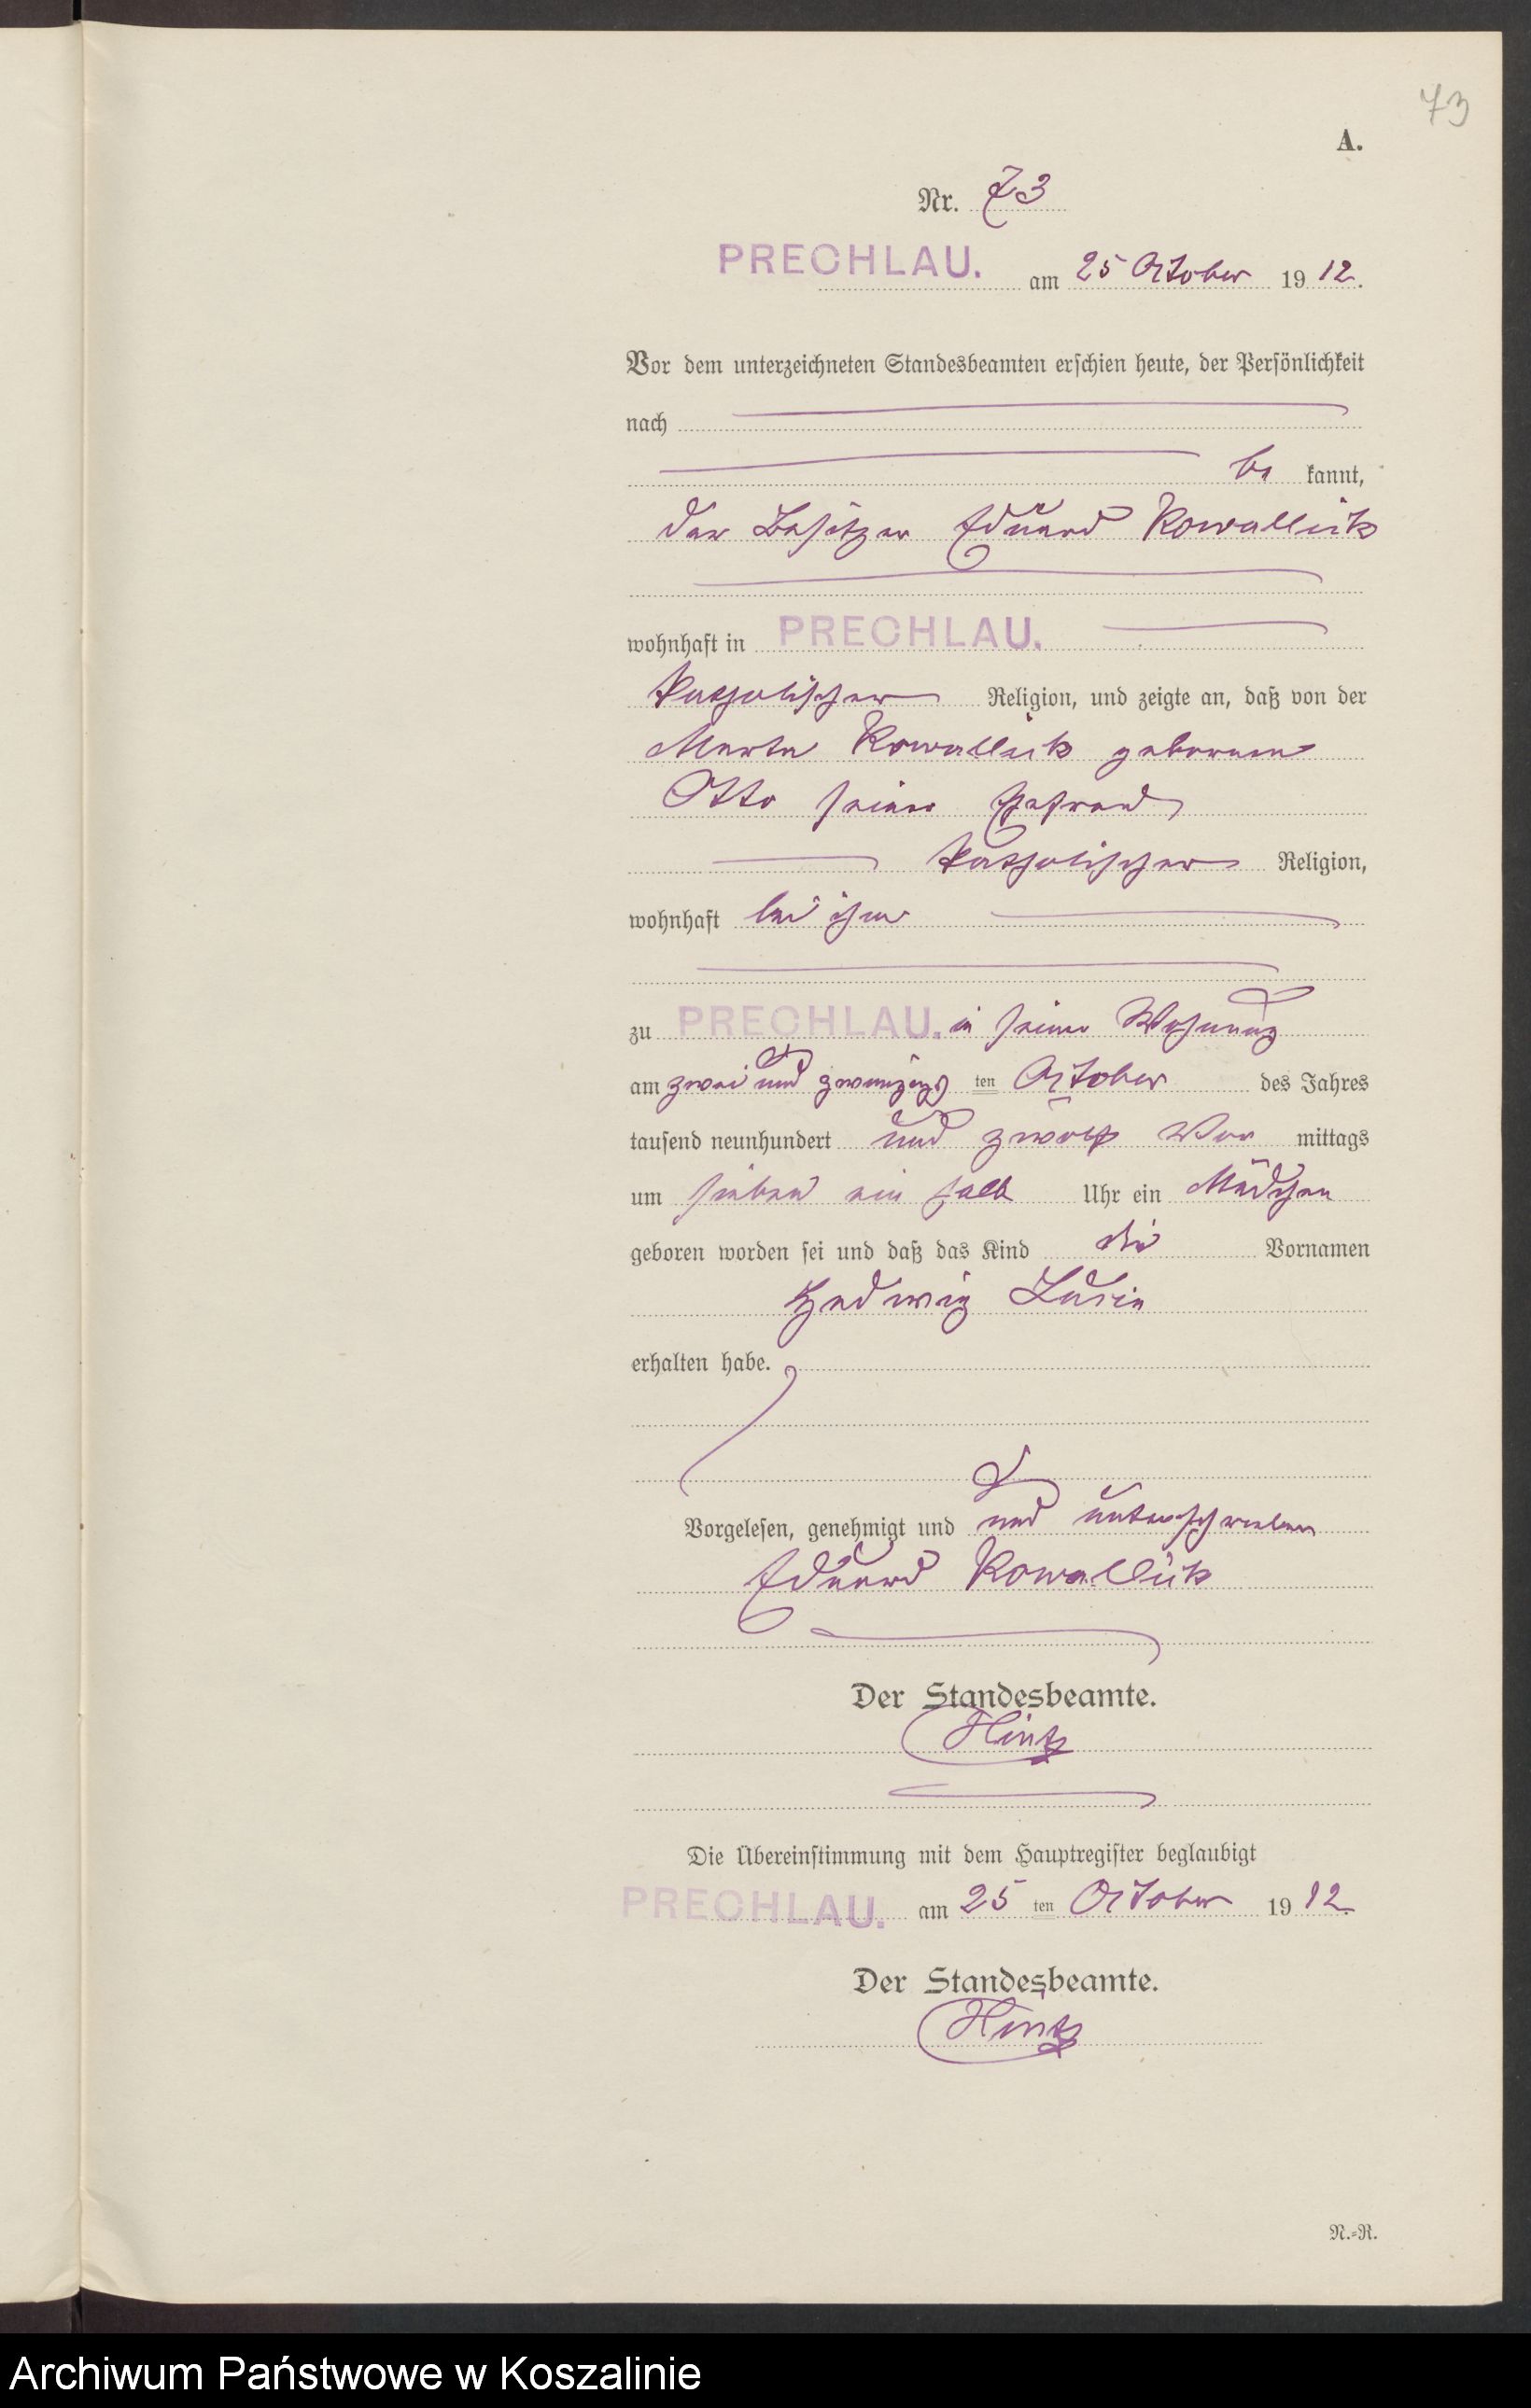 73
A.
Nr. 73
PRECHLAU. am 25 October 1912.
Vor dem unterzeichneten Standesbeamten erschien heute, der Persönlichkeit
nach
be kannt,
der Besitzer Eduard Kowallik
wohnhaft in PRECHLAU.
katholischer Religion, und zeigte an, daß von der
Marta Kowallik geborene
Otto seiner Ehefrau
katholischer Religion,
wohnhaft bei ihm
zu PRECHLAU. in seiner Wohnung
am zwei und zwanzigsten October des Jahres
tausend neunhundert und zwölf Vor mittags
um sieben ein halb Uhr ein Mädchen
geboren worden sei und daß das Kind die Vornamen
Hedwig Luzia
erhalten habe.
Vorgelesen, genehmigt und und unterschrieben
Eduard Kowallik
Der Standesbeamte.
Hintz
Die Übereinstimmung mit dem Hauptregister beglaubigt
PRECHLAU. am 25 ten October 1912.
Der Standesbeamte.
Hintz
N.-R.
Archiwum Państwowe w Koszalinie